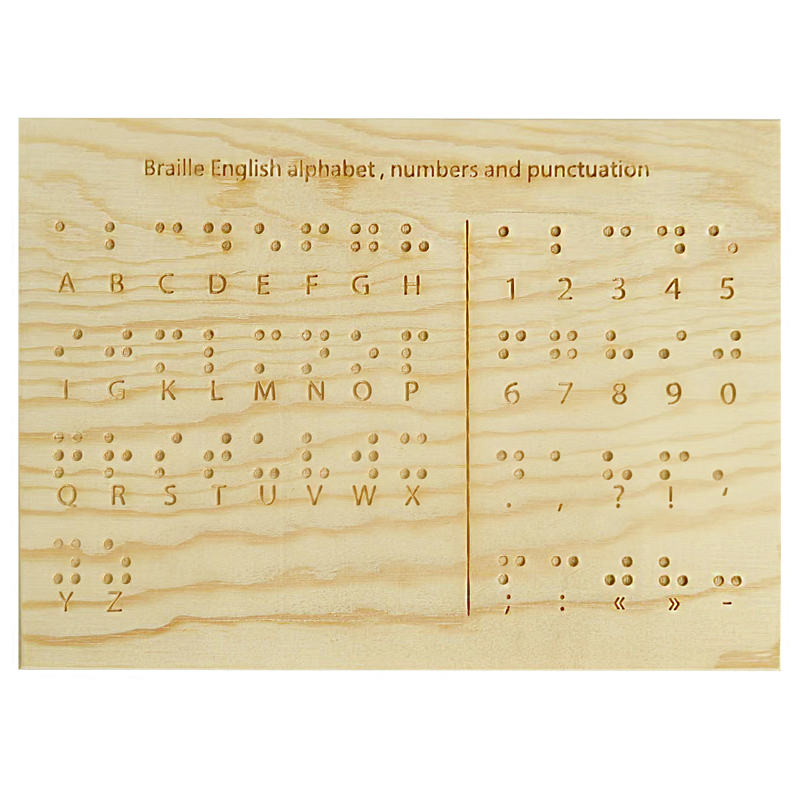 Braille English alphabet, numbers and punctuation
A B C D E F G H
I G K L M N O P
Q R S T U V W X
Y Z
1 2 3 4 5
6 7 8 9 0
. , ? ! ‘
; : « » -